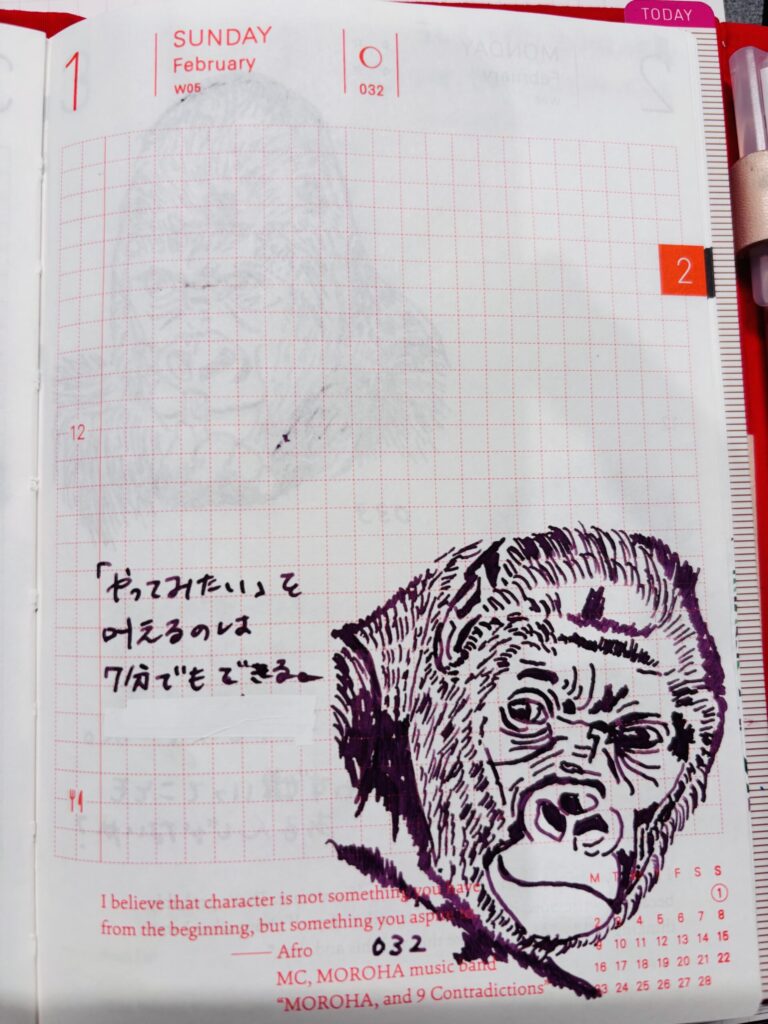 TODAY
1
SUNDAY
February
W05
032
2
12
「やってみたい」を
叶えるのは
7分でもできる。
I believe that character is not something you have
from the beginning, but something you aspire to.
—— Afro
MC, MOROHA music band
"MOROHA, and 9 Contradictions"
032
M T F S S
1
2 3 4 5 6 7 8
9 10 11 12 13 14 15
16 17 18 19 20 21 22
23 24 25 26 27 28